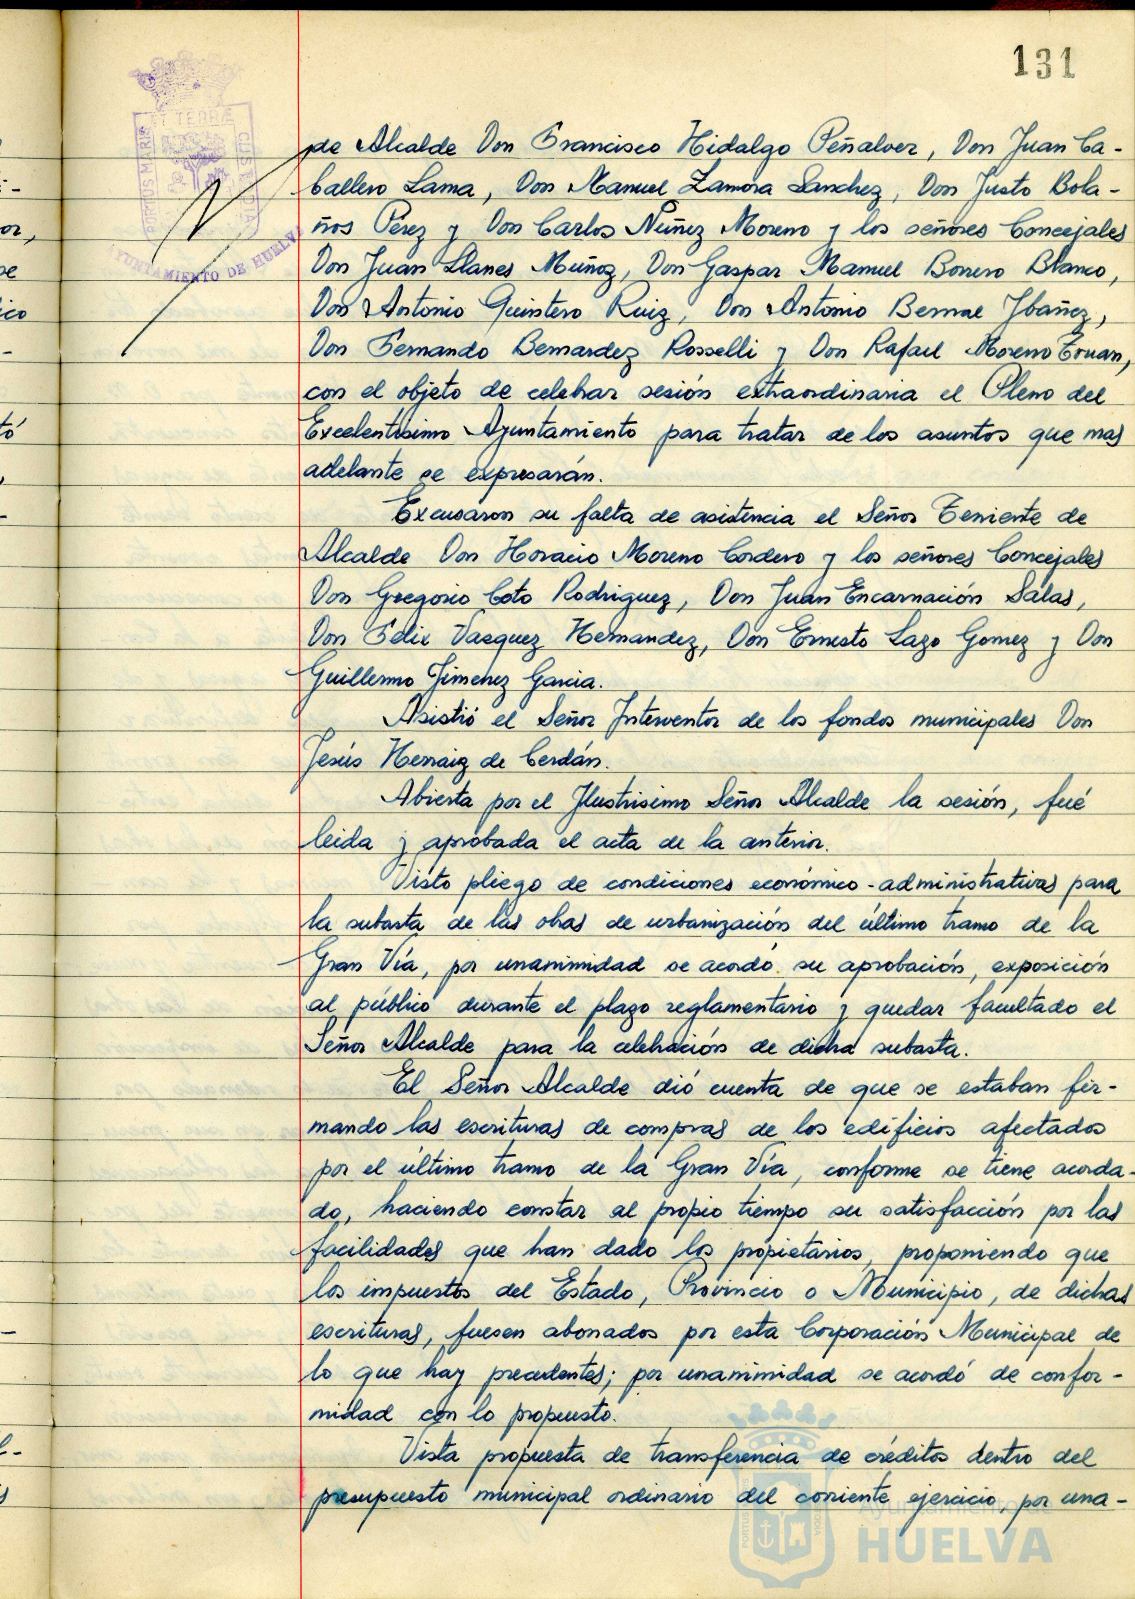 131
PORTUS MARIS
ET TERRÆ
CUSTODIA
AYUNTAMIENTO DE HUELVA
de Alcalde Don Francisco Hidalgo Peñalver, Don Juan Ca-
ballero Lama, Don Manuel Zamora Sanchez, Don Justo Bola-
ños Pérez y Don Carlos Núñez Moreno y los señores Concejales
Don Juan Llanes Muñoz, Don Gaspar Manuel Borrero Blanco,
Don Antonio Quintero Ruiz, Don Antonio Bernal Ibañez,
Don Fernando Bernardez Rosselli y Don Rafael Moreno Touan,
con el objeto de celebrar sesión extraordinaria el Pleno del
Excelentísimo Ayuntamiento para tratar de los asuntos que mas
adelante se expresarán.
Excusaron su falta de asistencia el Señor Teniente de
Alcalde Don Horacio Moreno Cordero y los señores Concejales
Don Gregorio Coto Rodriguez, Don Juan Encarnación Salas,
Don Felix Vasquez Hernandez, Don Ernesto Lazo Gomez y Don
Guillermo Jimenez Garcia.
Asistió el Señor Interventor de los fondos municipales Don
Jesús Herraiz de Cerdán.
Abierta por el Ilustrisimo Señor Alcalde la sesión, fué
leida y aprobada el acta de la anterior.
Visto pliego de condiciones económico-administrativas para
la subasta de las obras de urbanización del último tramo de la
Gran Vía, por unanimidad se acordó su aprobación, exposición
al público durante el plazo reglamentario y quedar facultado el
Señor Alcalde para la celebración de dicha subasta.
El Señor Alcalde dió cuenta de que se estaban fir-
mando las escrituras de compras de los edificios afectados
por el último tramo de la Gran Vía, conforme se tiene acorda-
do, haciendo constar al propio tiempo su satisfacción por las
facilidades que han dado los propietarios, proponiendo que
los impuestos del Estado, Provincio o Municipio, de dichas
escrituras, fuesen abonados por esta Corporación Municipal de
lo que hay precedentes; por unanimidad se acordó de confor-
midad con lo propuesto.
Vista propuesta de transferencia de créditos dentro del
presupuesto municipal ordinario del corriente ejercicio, por una-
Ayuntamiento de
HUELVA